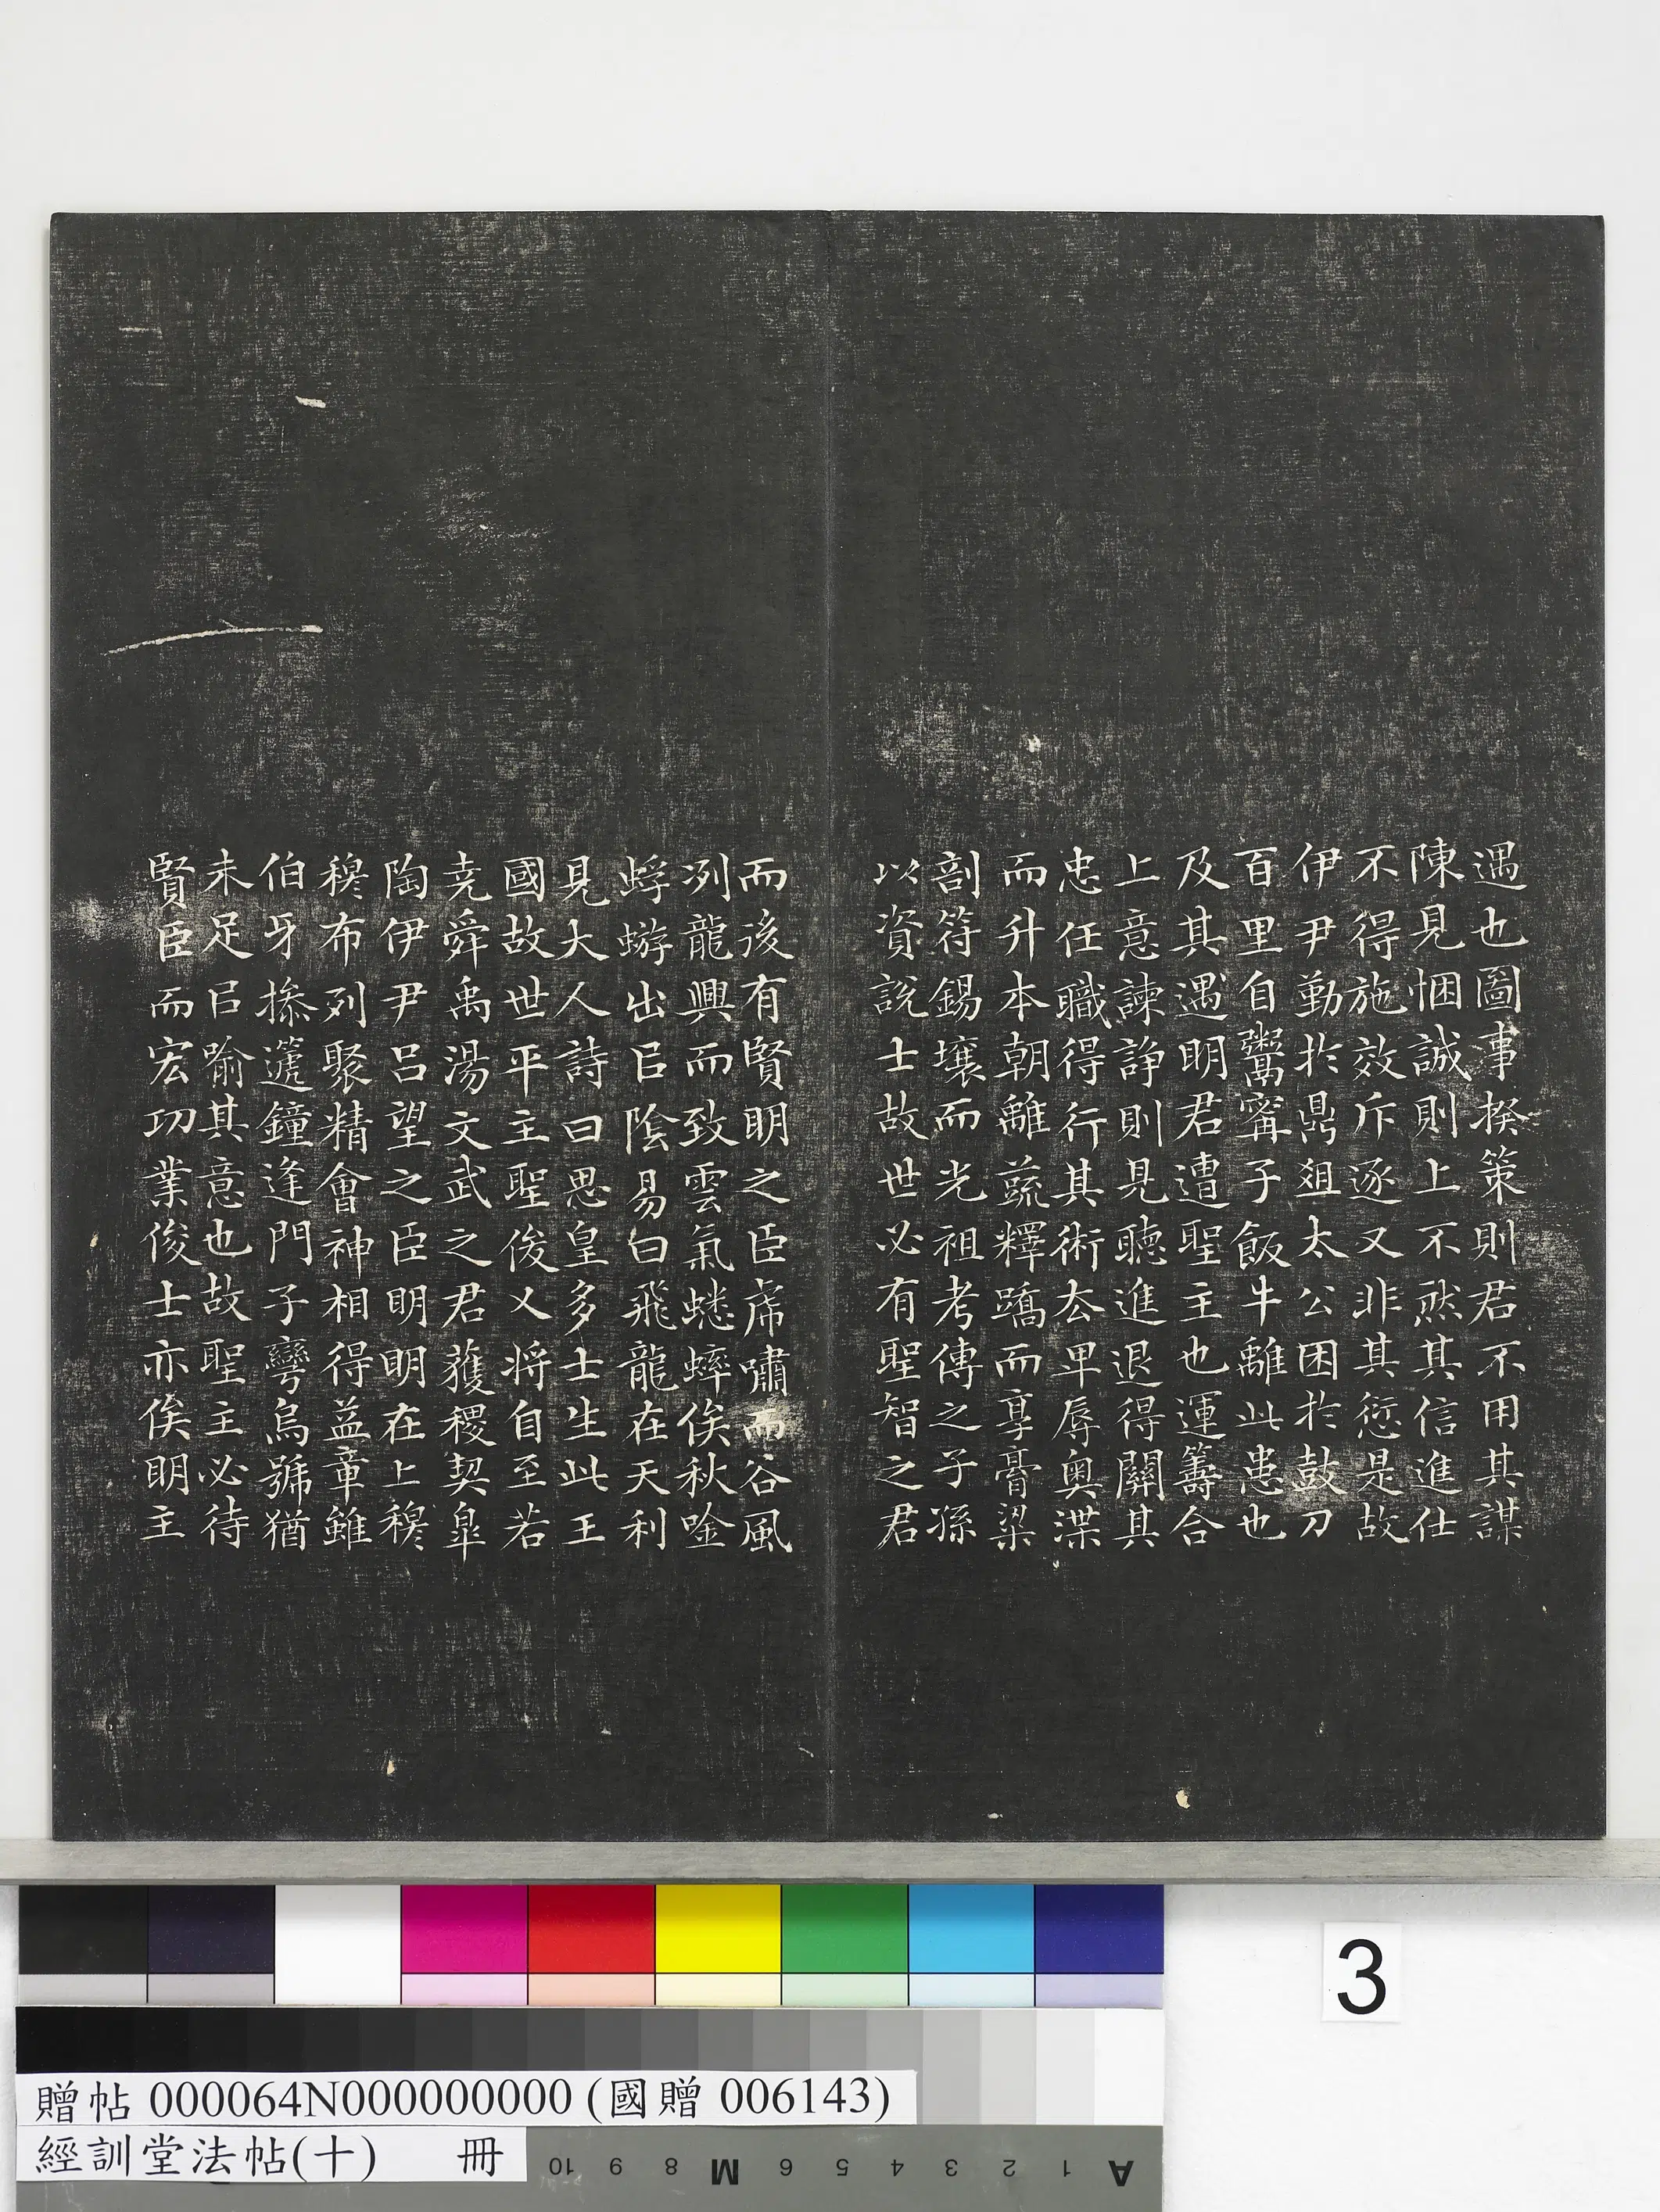 遇也圖事揆策則君不用其謀
陳見悃誠則上不然其信進仕
不得施效斥逐又非其愆是故
伊尹勤於鼎俎太公困於鼓刀
百里自鬻甯子飯牛離此患也
及其遇明君遭聖主也運籌合
上意諫諍則見聽進退得關其
忠任職得行其術去卑辱奧渫
而升本朝離蔬釋蹻而享膏粱
剖符錫壤而光祖考傳之子孫
以資說士故世必有聖智之君
而後有賢明之臣虎嘯而谷風
冽龍興而致雲氣蟋蟀俟秋唫
蜉蝣出㠯陰易曰飛龍在天利
見大人詩曰思皇多士生此王
國故世平主聖俊乂將自至若
堯舜禹湯文武之君獲稷契皐
陶伊尹呂望之臣明明在上穆
穆布列聚精會神相得益章雖
伯牙操遞鐘逢門子彎烏號猶
未足㠯喻其意也故聖主必待
賢臣而宏功業俊士亦俟明主
3
贈帖 000064N000000000 (國贈 006143)
經訓堂法帖(十) 冊
10 9 8 M 6 5 4 3 2 1 A